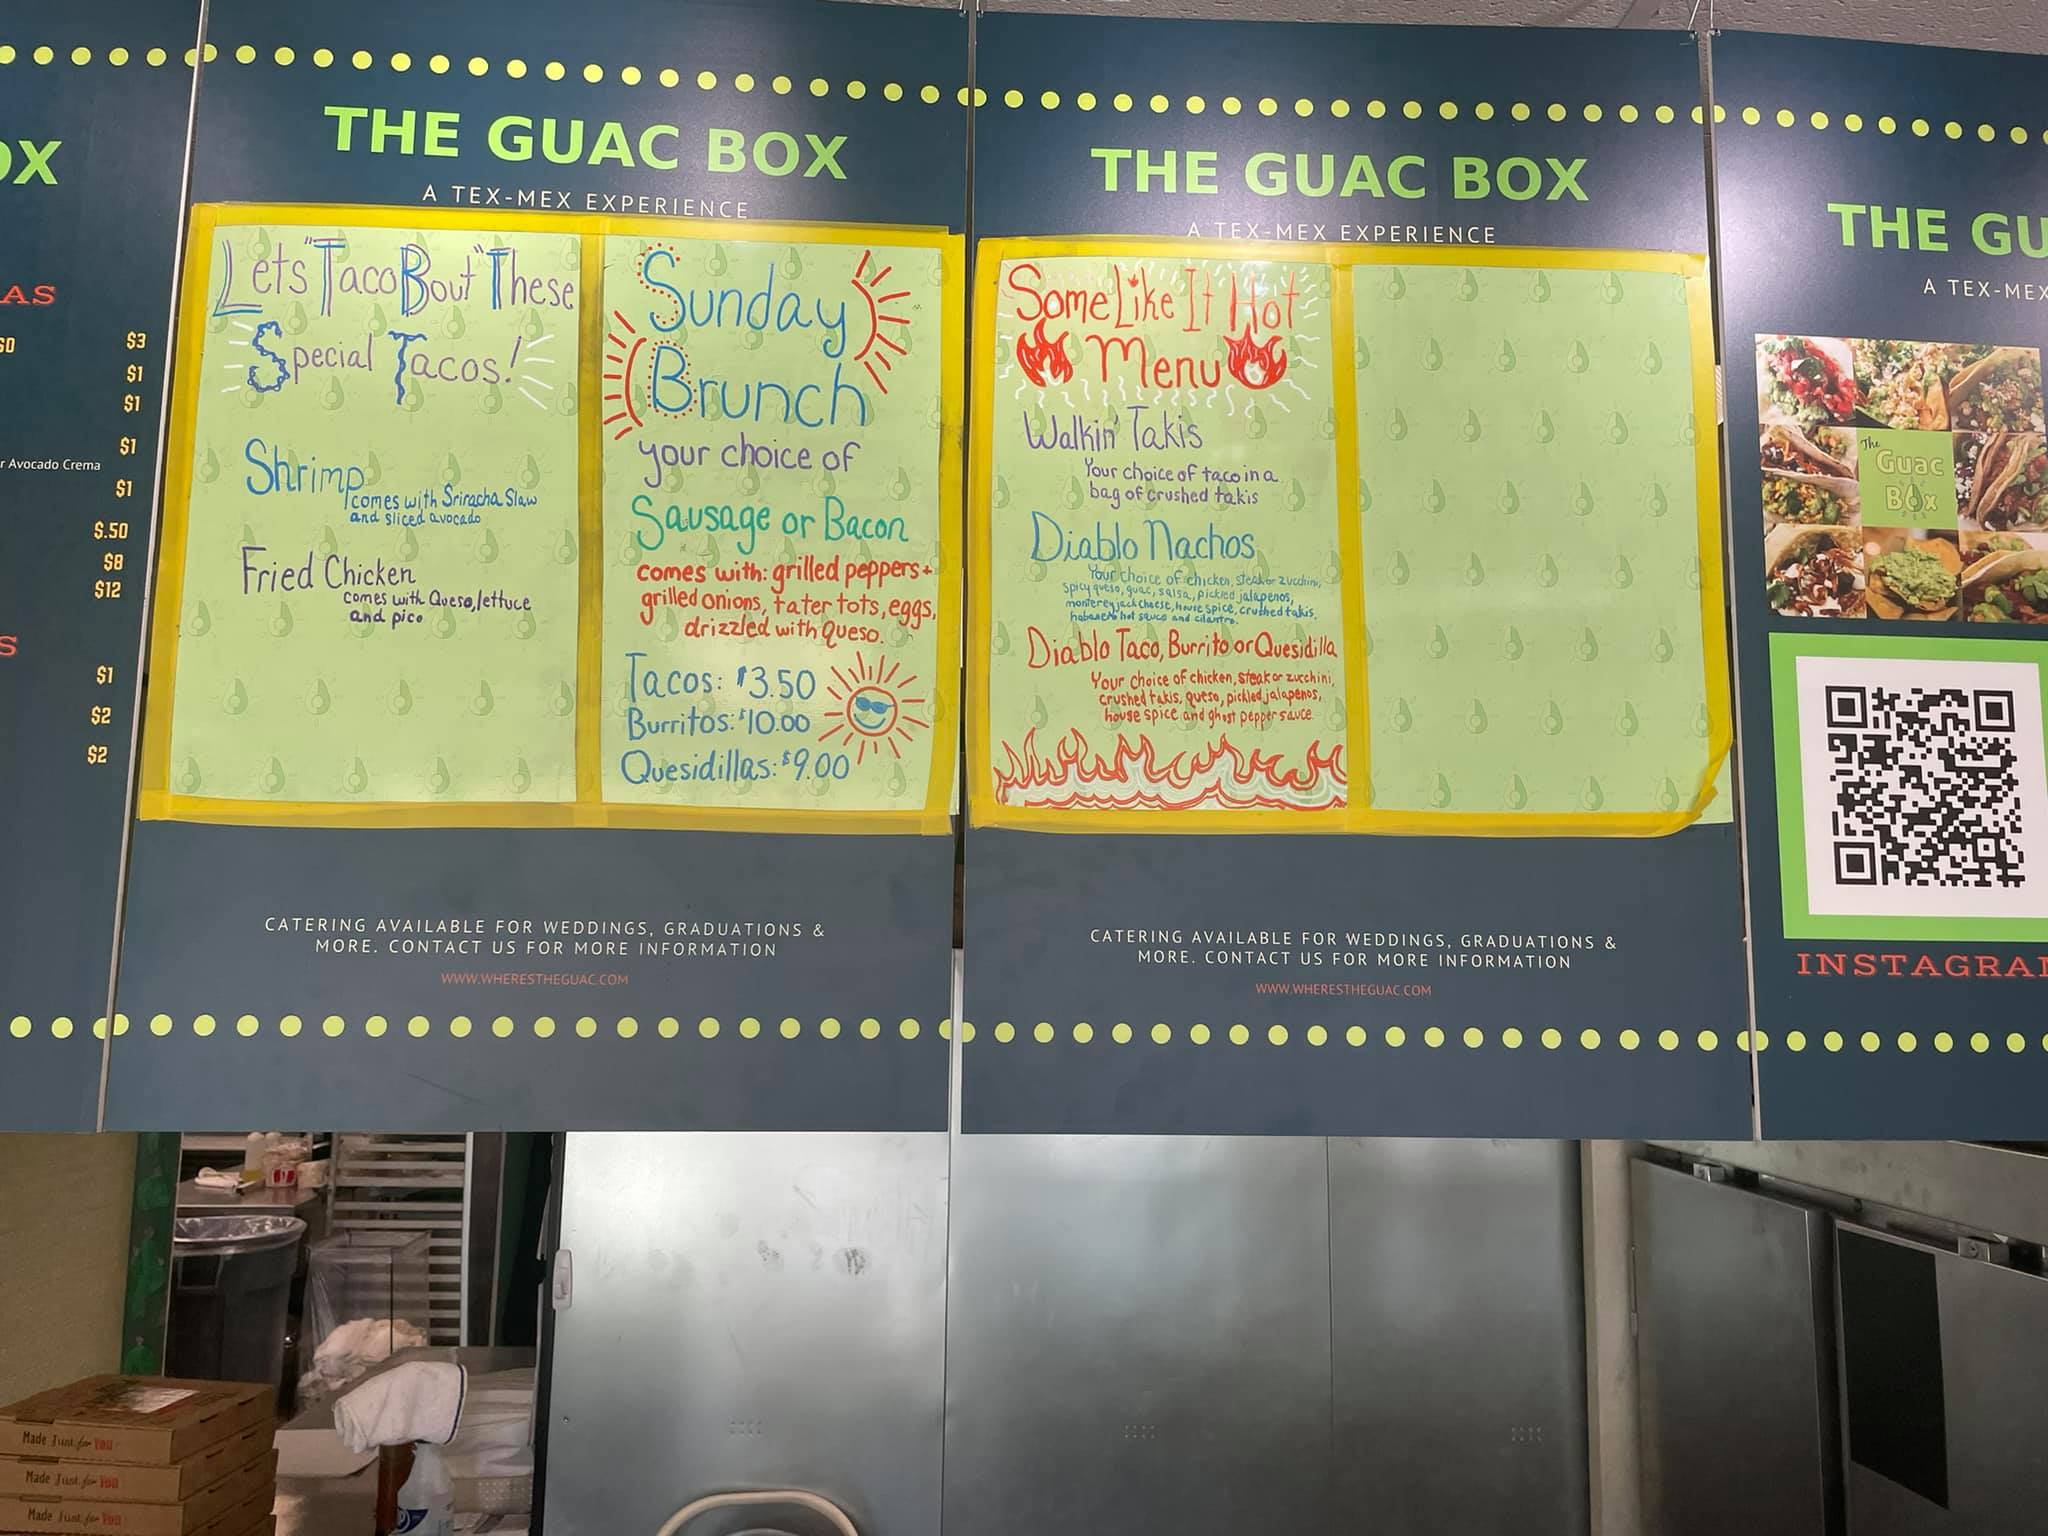 OX
AS
$3
$1
$1
$1
r Avocado Crema
$1
$.50
$8
$12
S
$1
$2
$2
THE GUAC BOX
A TEX-MEX EXPERIENCE
Lets "Taco Bout" These
Special Tacos!
Shrimp
comes with Sriracha Slaw
and sliced avocado
Fried Chicken
comes with Queso, lettuce
and pico
Sunday
Brunch
your choice of
Sausage or Bacon
comes with: grilled peppers +
grilled onions, tater tots, eggs,
drizzled with queso.
Tacos: $3.50
Burritos: $10.00
Quesidillas: $9.00
CATERING AVAILABLE FOR WEDDINGS, GRADUATIONS &
MORE. CONTACT US FOR MORE INFORMATION
WWW.WHERESTHEGUAC.COM
THE GUAC BOX
A TEX-MEX EXPERIENCE
Some Like It Hot
Menu
Walkin' Takis
Your choice of taco in a
bag of crushed takis
Diablo Nachos
Your choice of chicken, steak or zucchini,
spicy queso, guac, salsa, pickled jalapenos,
monterey jack cheese, house spice, crushed takis,
habanero hot sauce and cilantro.
Diablo Taco, Burrito or Quesidilla
Your choice of chicken, steak or zucchini,
crushed takis, queso, pickled jalapenos,
house spice and ghost pepper sauce
CATERING AVAILABLE FOR WEDDINGS, GRADUATIONS &
MORE. CONTACT US FOR MORE INFORMATION
WWW.WHERESTHEGUAC.COM
THE GU
A TEX-MEX
The
Guac
Box
INSTAGRA
Made Just for You
Made Just for You
Made Just for You